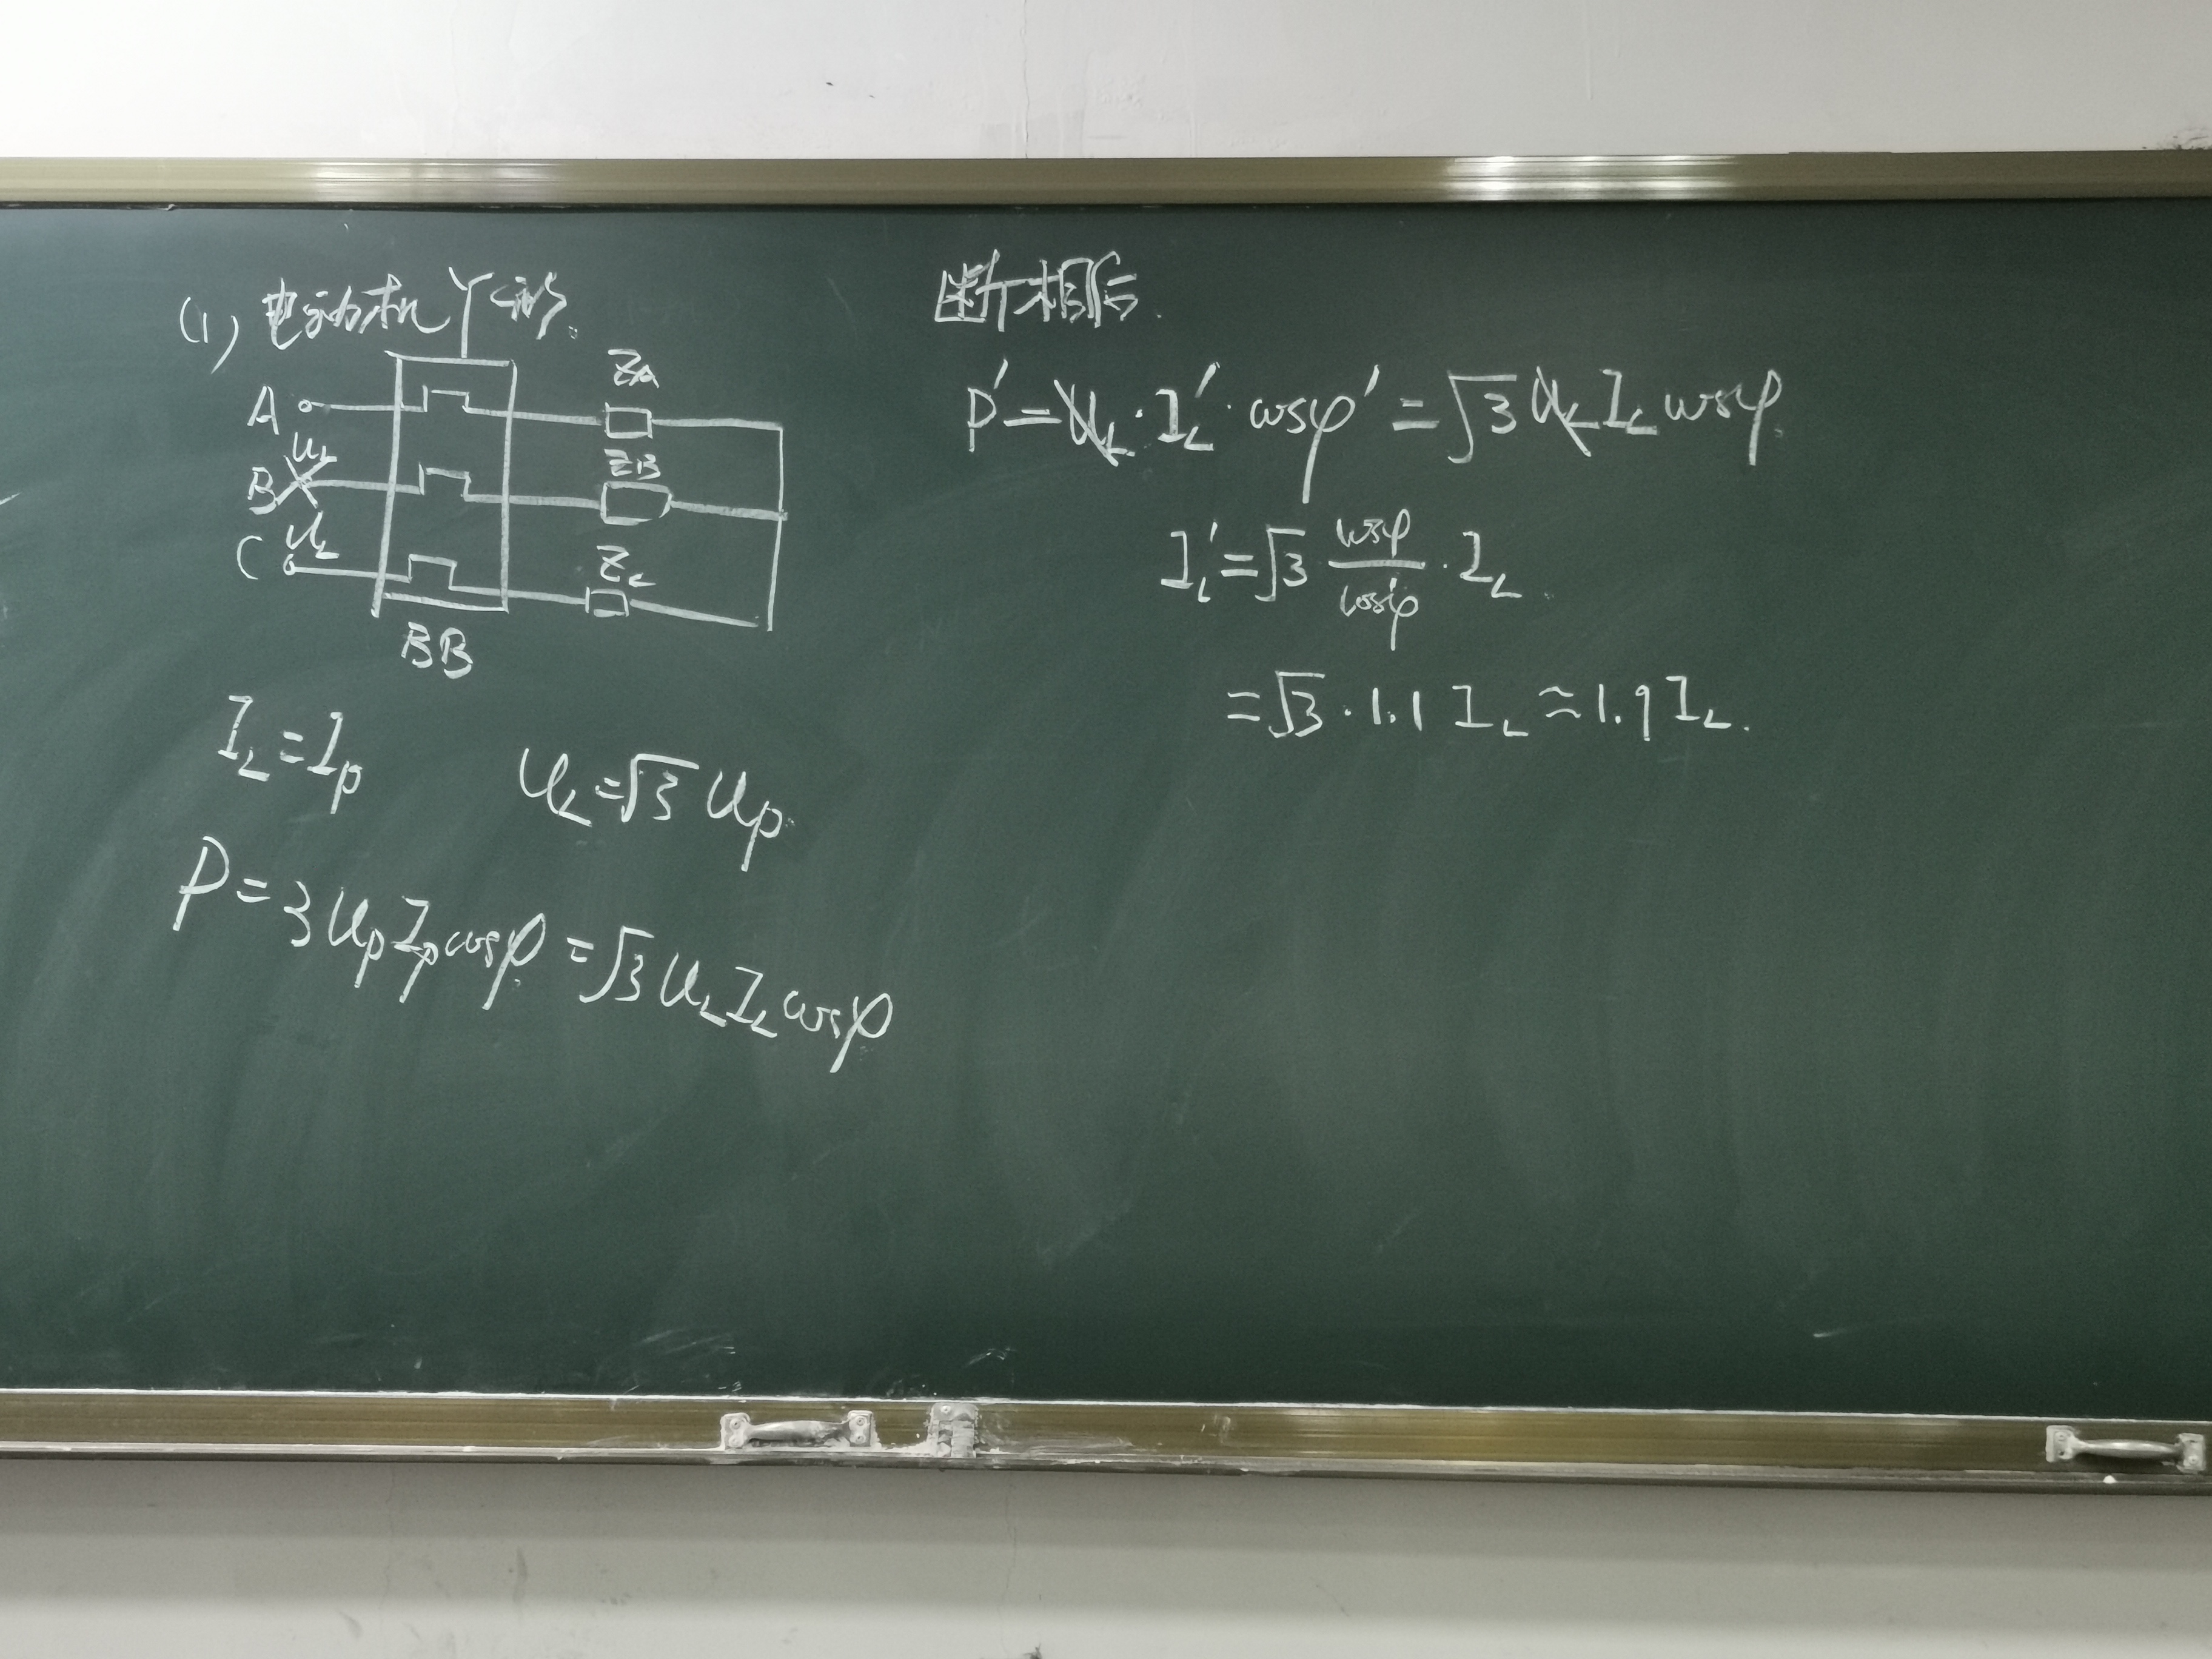 (1) 电动机Y形.
ZA
A
UL
ZB
B
UL
ZC
C
BB
IL=Ip UL=√3 Up.
P=3UpIpcosφ=√3ULILcosφ
断相后.
P'=UL·IL'·cosφ'=√3ULILcosφ.
IL'=√3 cosφ/cosφ' · IL.
=√3·1.1 IL≈1.9IL.